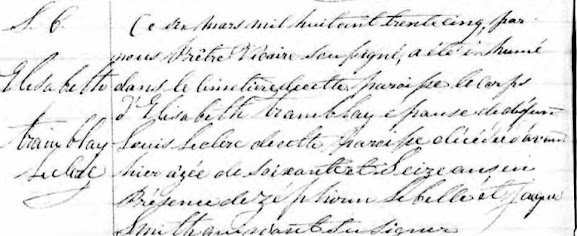 S. 6.
Elisabeth
tramblay
Leclere
Ce dix mars mil huit cent trente cinq, par
nous Prêtre Vicaire soussigné, a été inhumé
dans le cimetière de cette paroisse le corps
d'Elisabeth tramblay epouse de défunt
Louis Leclere de cette paroisse décédée avant
hier agée de soixante et Seize ans en
Présence de zéphirin Lebelle et
Smith qui n'ont su signer